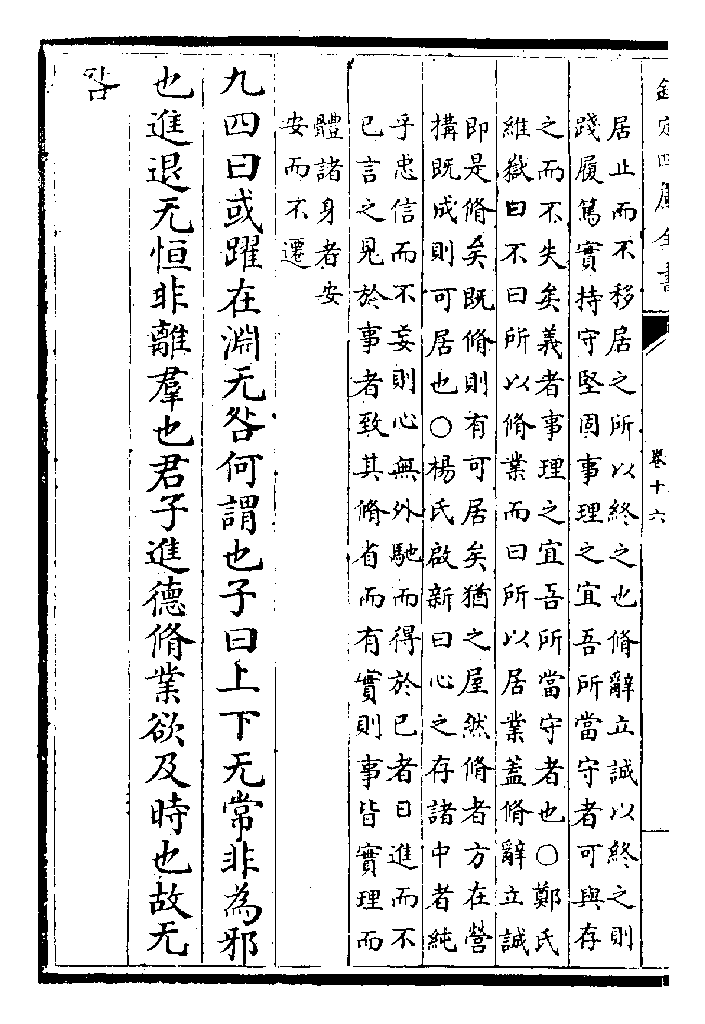 欽定四庫全書
卷十六
居止而不移居之所以終之也脩辭立誠以終之則
踐履篤實持守堅固事理之宜吾所當守者可與存
之而不失矣義者事理之宜吾所當守者也○鄭氏
維嶽曰不曰所以脩業而曰所以居業蓋脩辭立誠
即是脩矣既脩則有可居矣猶之屋然脩者方在營
構既成則可居也○楊氏啟新曰心之存諸中者純
乎忠信而不妄則心無外馳而得於已者日進而不
已言之見於事者致其脩省而有實則事皆實理而
體諸身者安
安而不遷
九四曰或躍在淵无咎何謂也子曰上下无常非為邪
也進退无恒非離羣也君子進德脩業欲及時也故无
咎